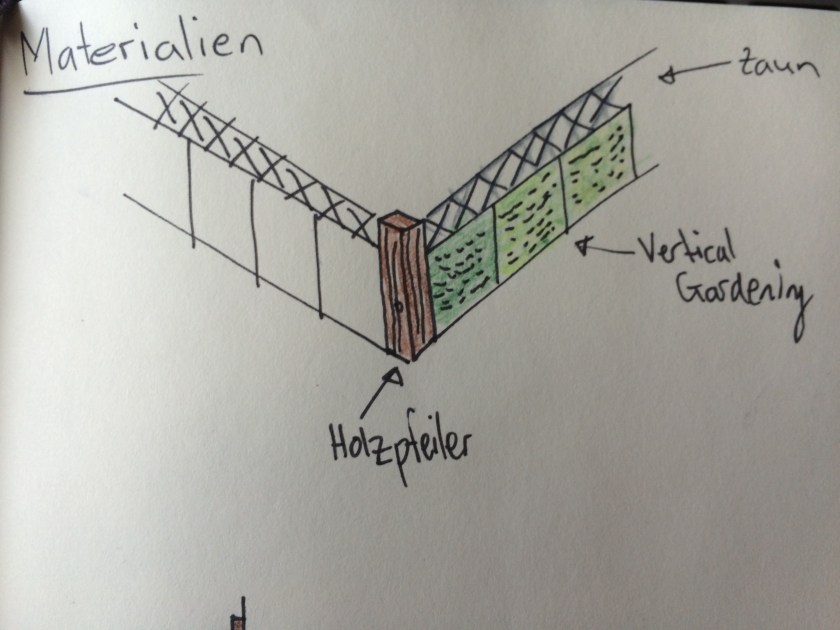 Materialien
Zaun
Vertical
Gardening
Holzpfeiler